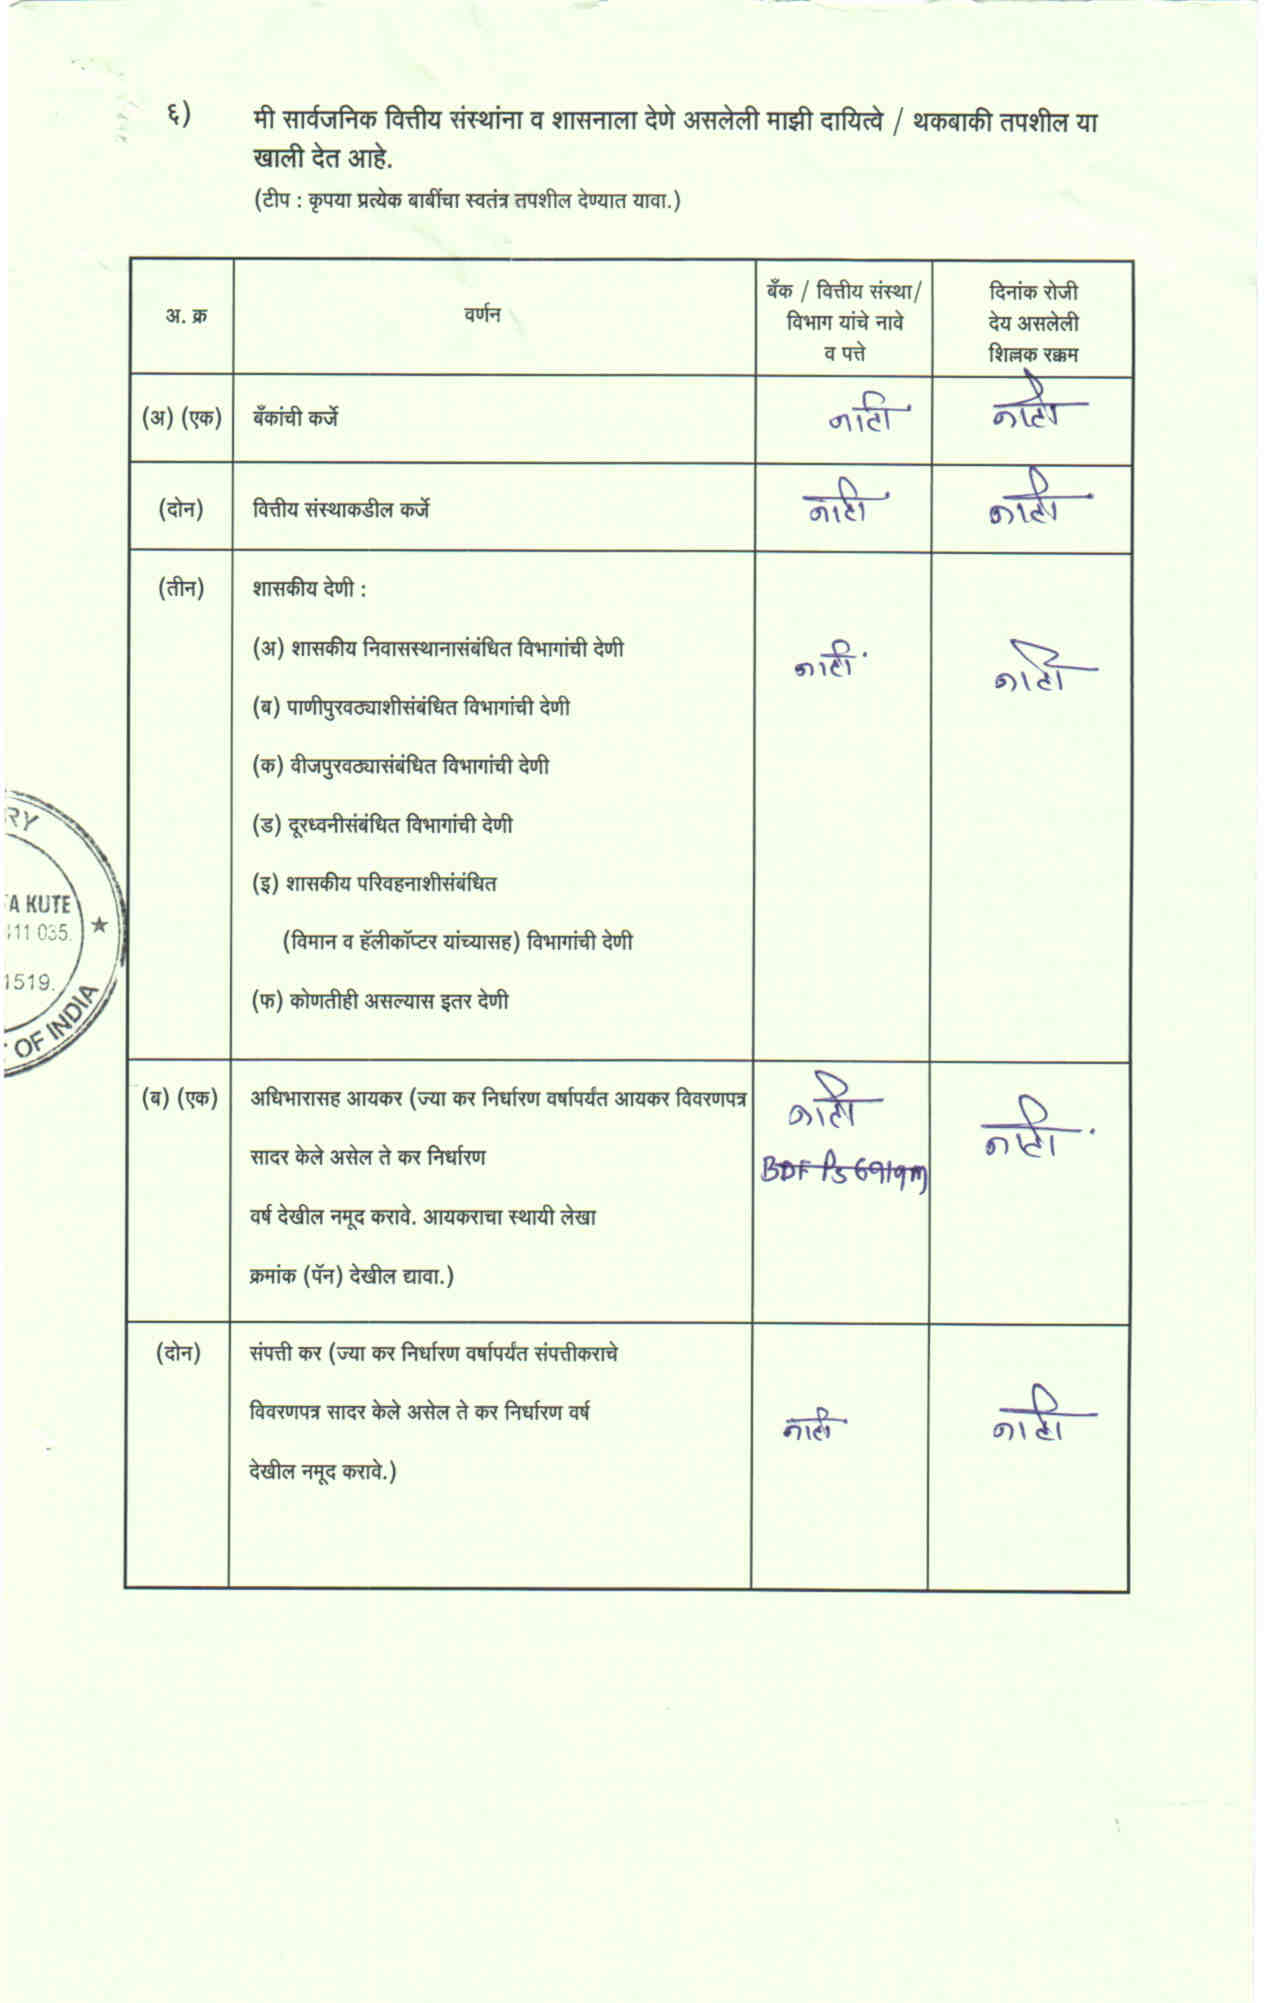 ६) मी सार्वजनिक वित्तीय संस्थांना व शासनाला देणे असलेली माझी दायित्वे / थकबाकी तपशील या
खाली देत आहे.
(टीप : कृपया प्रत्येक बाबींचा स्वतंत्र तपशील देण्यात यावा.)
अ. क्र वर्णन बँक / वित्तीय संस्था/ दिनांक रोजी
विभाग यांचे नावे देय असलेली
व पत्ते शिल्लक रक्कम
(अ) (एक) बँकांची कर्जे नाही नाही
(दोन) वित्तीय संस्थाकडील कर्जे नाही नाही
(तीन) शासकीय देणी :
(अ) शासकीय निवासस्थानासंबंधित विभागांची देणी नाही नाही
(ब) पाणीपुरवठ्याशीसंबंधित विभागांची देणी
(क) वीजपुरवठ्यासंबंधित विभागांची देणी
(ड) दूरध्वनीसंबंधित विभागांची देणी
(इ) शासकीय परिवहनाशीसंबंधित
(विमान व हॅलीकॉप्टर यांच्यासह) विभागांची देणी
(फ) कोणतीही असल्यास इतर देणी
(ब) (एक) अधिभारासह आयकर (ज्या कर निर्धारण वर्षापर्यंत आयकर विवरणपत्र नाही नाही
सादर केले असेल ते कर निर्धारण
वर्ष देखील नमूद करावे. आयकराचा स्थायी लेखा
क्रमांक (पॅन) देखील द्यावा.)
(दोन) संपत्ती कर (ज्या कर निर्धारण वर्षापर्यंत संपत्तीकराचे
विवरणपत्र सादर केले असेल ते कर निर्धारण वर्ष नाही नाही
देखील नमूद करावे.)
RY
A KUTE
411 035.
1519.
OF INDIA